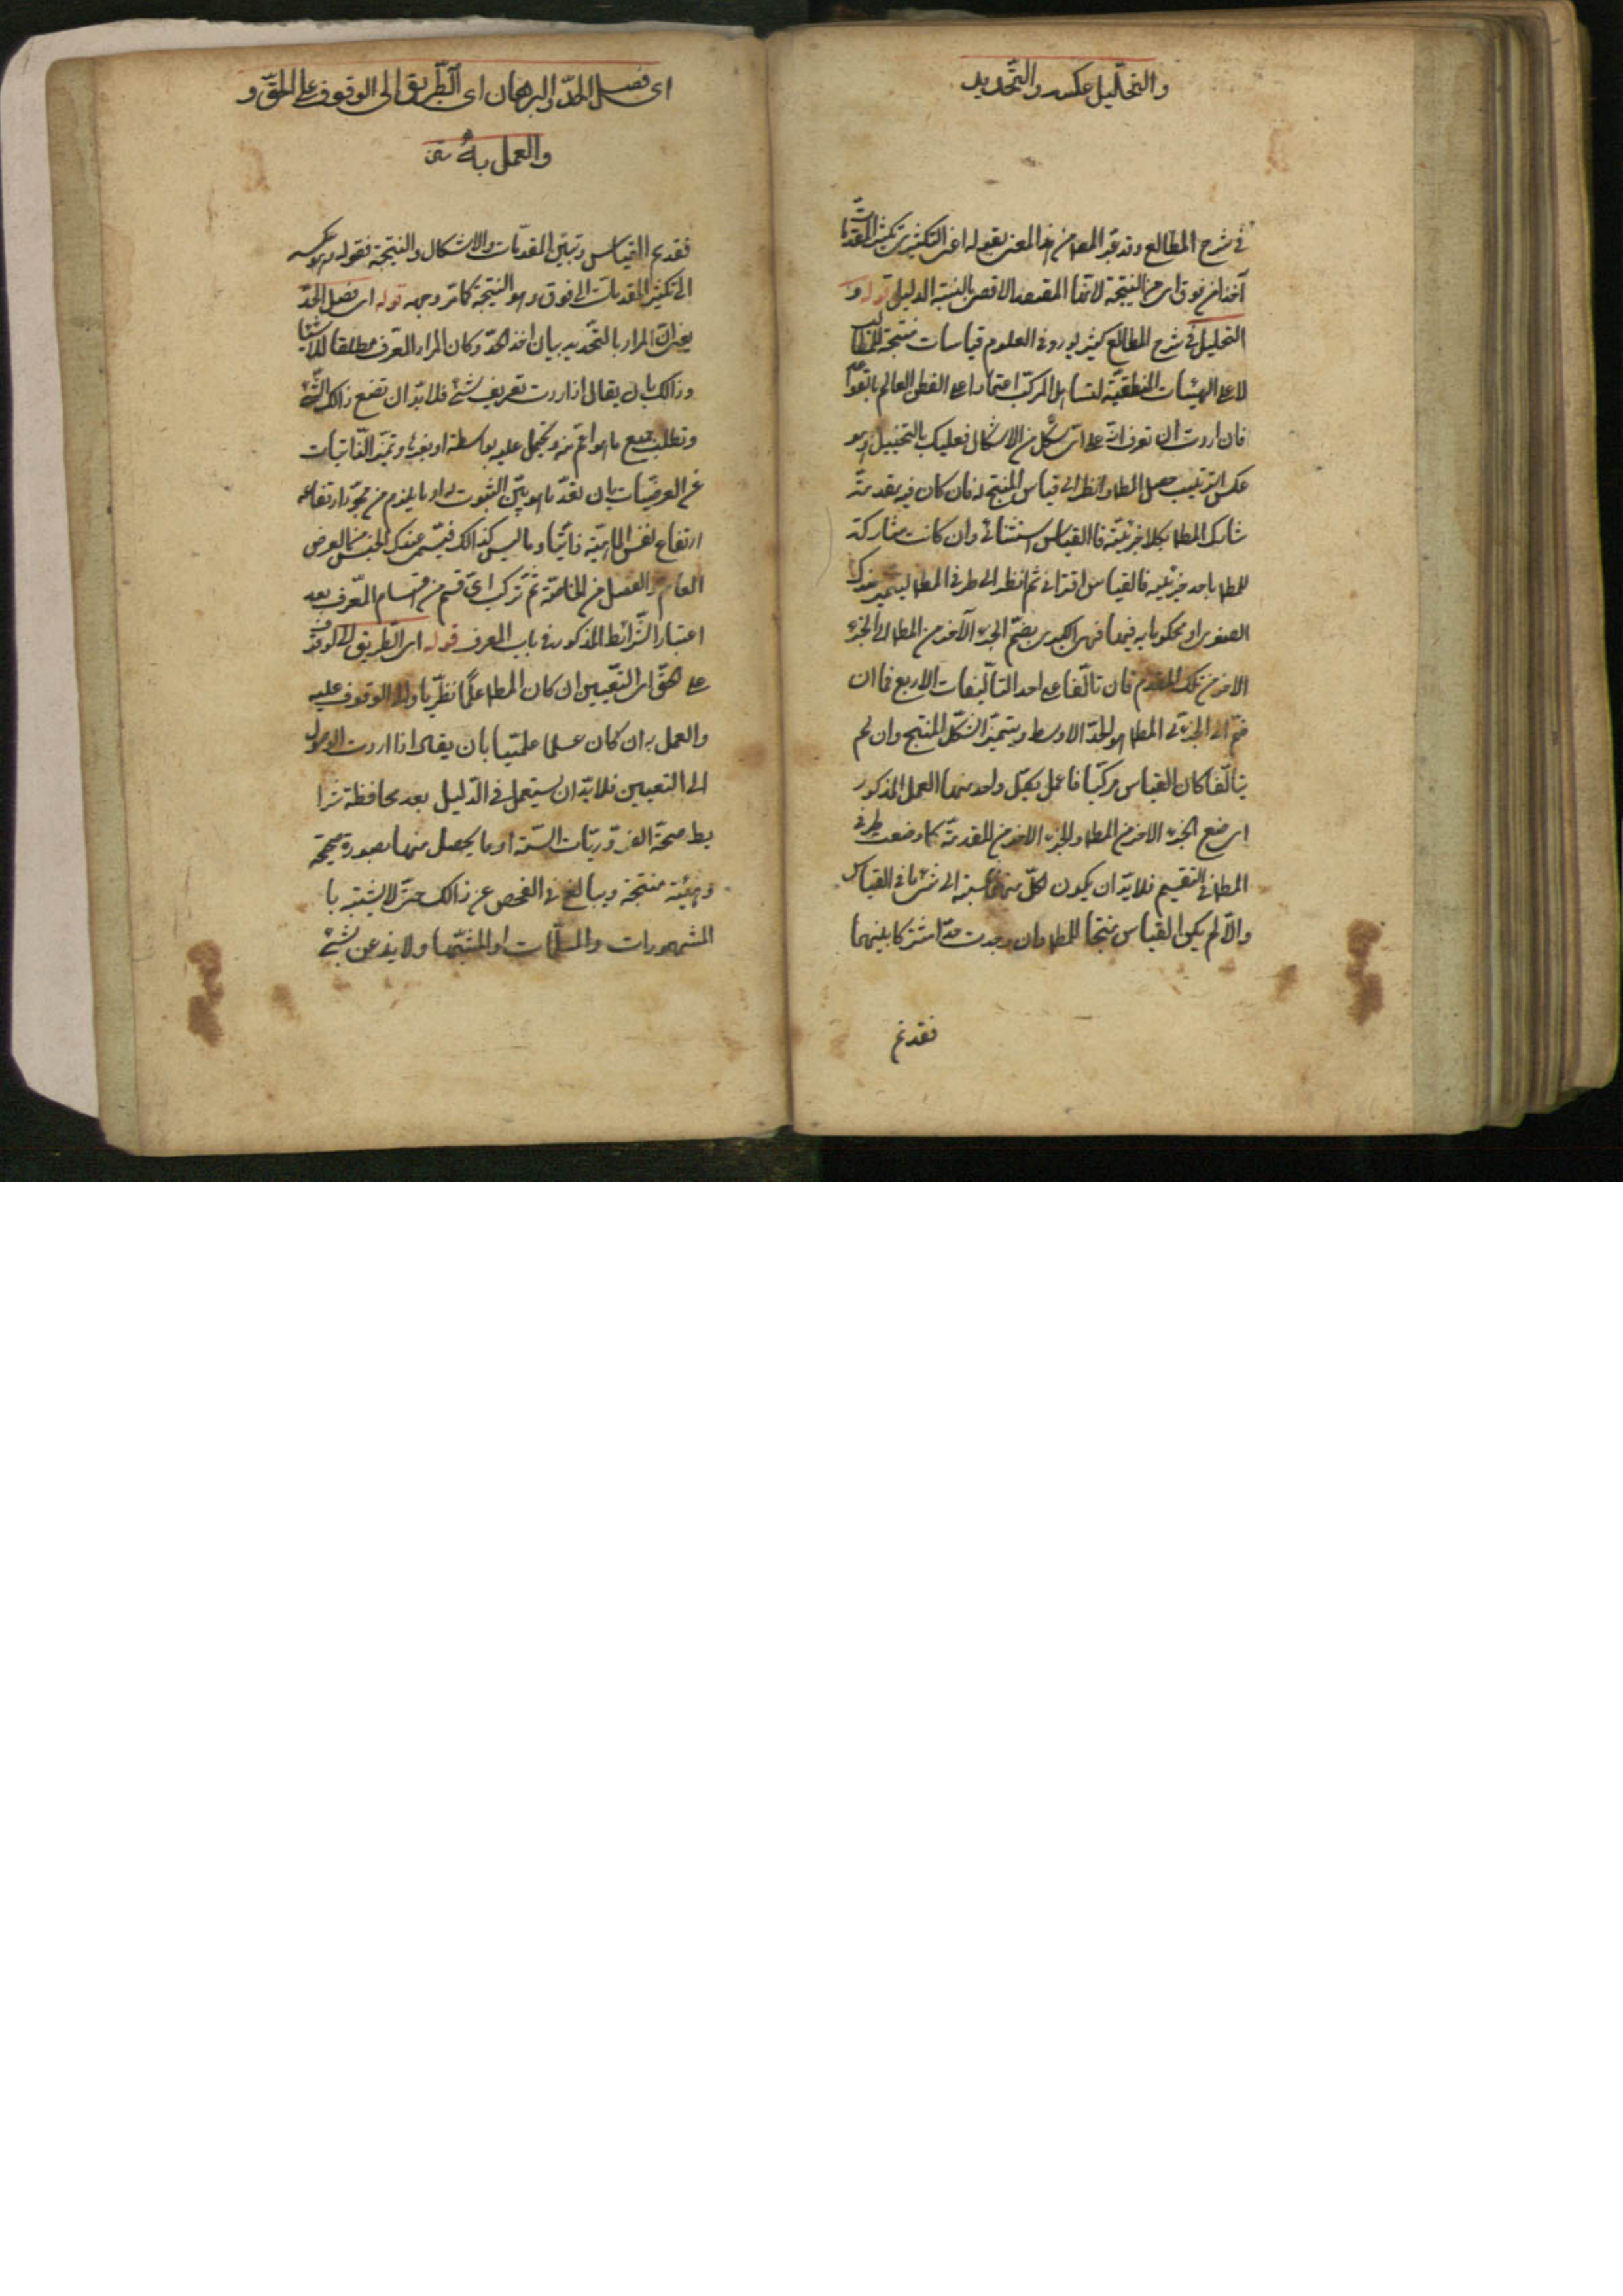 والتحليل عكسه والتحديد
في شرح المطالع وقد عبّر المص من هذا المعنى بقوله اعنى التكثير تكثير المقدمات
آخذا من فوق اى من النتيجة لانها المقصد الاقصى بالنسبة الدليل قوله و
التحليل في شرح المطالع كثير يورد في العلوم قياسات منتجة للمطالب
لا على الهيئات المنطقية لتساهل المركب اعتمادا على الفطن العالم بالقواعد
فان اردت ان تعرف انه على اى شكل من الاشكال فعليك بالتحليل وهو
عكس الترتيب حصل المط وانظر الى قياس المنتج له فان كان فيه مقدمة
شارك المط بكلا جزئيه فالقياس استثنائى وان كانت مشاركة
للمط باحد جزئيه فالقياس اقترانى ثم انظر الى طرفى المط ليتميز عندك
الصغرى او محكوما به فيها فهى الكبرى بضم الجزء الآخر من المط الى الجزء
الاخر من تلك المقدم فان تالفا على احد التاليفات الاربع فاان
ضم الى الجزئى المط هو الحد الاوسط ويتميز الشكل المنتج وان لم
يتالفا كان القياس مركبا فاعمل بكل واحد منها العمل المذكور
اى ضع الجزء الاخر من المط والجزء الاخر من المقدمة كما وضعت طرفى
المط فى التقسيم فلا بد ان يكون لكل منها نسبة الى شئ ما فى القياس
والا لم يكن القياس منتجا للمط وان وجدت حدا مشتركا بينهما
فقد تم
اى فصل الحدّ والبرهان اى الطّريق الى الوقوف على الحقّ و
والعمل به
فقد تم القياس وتبين المقدمات والاشكال والنتيجة فقوله وهو عكسه
الى تكثير المقدمات الى فوق وهو النتيجة كما مر وجهه قوله اى فصل الحد
يعنى ان المراد بالتحديد بيان اخذ الحد وكان المراد المعرف مطلقا للاشياء
وذالك بان يقال اذا اردت تعريف شئ فلا بد ان تضع ذالك الشئ
وتطلب جميع ما هو اعم منه وتحمل عليه بواسطة او بغيرها وتميز الذاتيات
عن العرضيات بان تعد ما هو بين الثبوت له او ما يلزم من مجرد ارتفاعه
ارتفاع نفس الماهية ذاتيا وما ليس كذالك فيتميز عندك الجنس من العرض
العام والفصل من الخاصة ثم تركب اى قسم من اقسام المعرف بعد
اعتبار الشرائط المذكورة فى باب المعرف قوله اى الطريق الى الوقوف
على الحق اى التعيين ان كان المط علما نظريا والى الوقوف عليه
والعمل به ان كان علما علميا بان يقال اذا اردت الوصول
الى التعيين فلا بد ان يستعمل فى الدليل بعد محافظة شرا
يط صحة الضروريات الستة او ما يحصل منها بصورة صحيحة
وهيئة منتجة ويبالغ فى الفحص عن ذالك حتى لا يشتبه با
المشهورات والمسلمات او المشبهات ولا يذعن بشئ